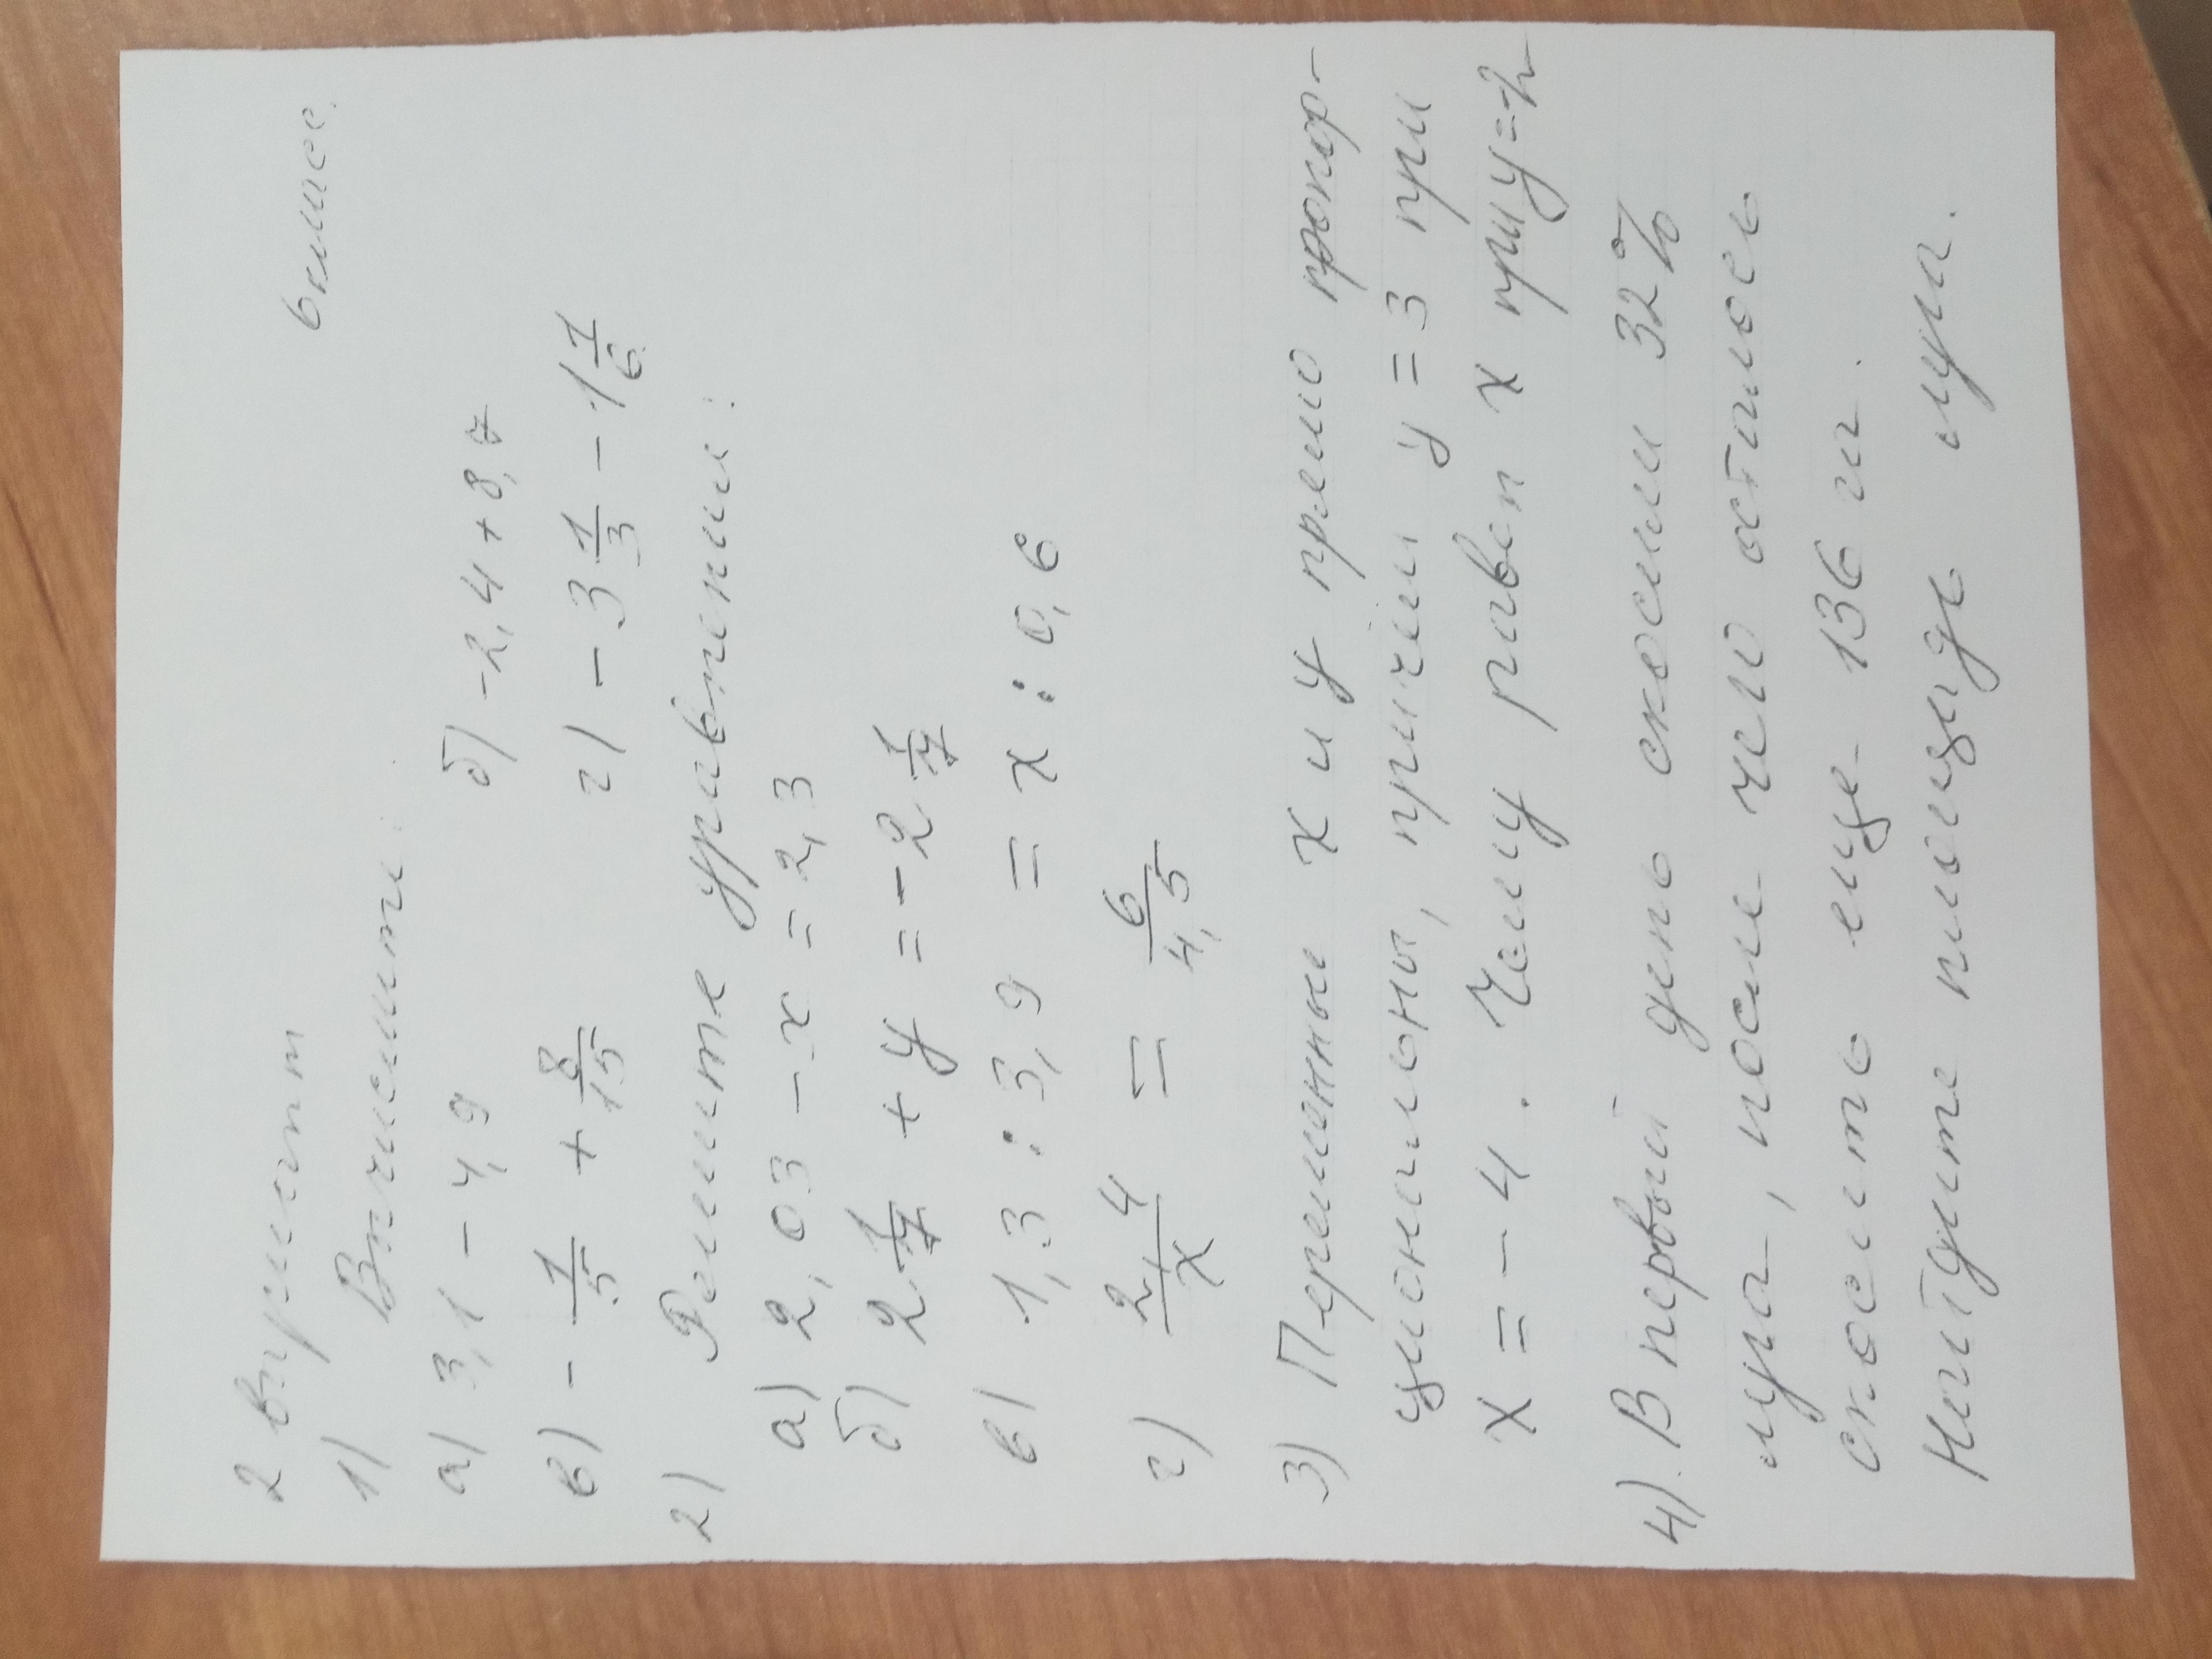 2 вариант
6 класс.
1) Вычислить:
а) 3,1 - 4,9 б) -2,4 + 8,7
в) - 1/5 + 8/15 г) - 3 1/3 - 1 1/6
2) Решите уравнения:
а) 2,03 - x = 2,3
б) 2 1/7 + y = -2 1/7
в) 1,3 : 3,9 = x : 0,6
г) 2,4/x = 6/4,5
3) Переменные x и y прямо пропор-
циональны, причём y = 3 при
x = - 4. Чему равен x при y=-2
4). В первый день скосили 32%
луга, после чего осталось
скосить еще 136 га.
Найдите площадь луга.